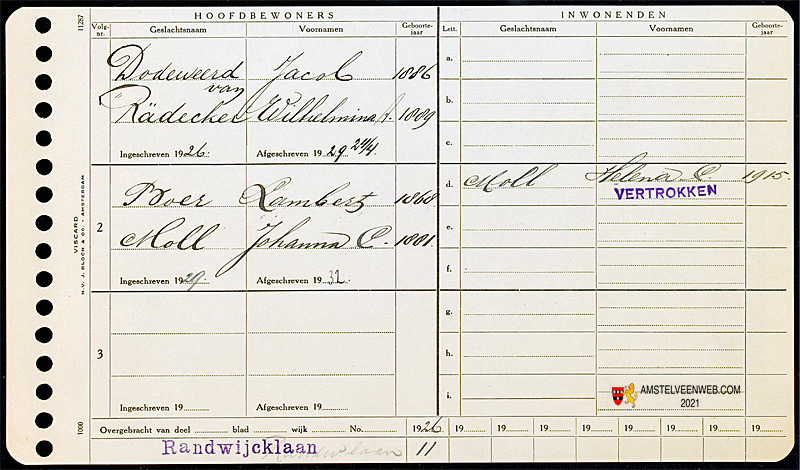 HOOFDBEWONERS INWONENDEN
Volg-nr. Geslachtsnaam Voornamen Geboorte-jaar Lett. Geslachtsnaam Voornamen Geboorte-jaar
11287
a.
Dodeweerd Jacob 1886
van
b.
Rädecker Wilhelmina J. 1889
c.
Ingeschreven 1926. Afgeschreven 1929 24/4
d. Moll Helena C 1915
VERTROKKEN
2 Boer Lambert 1868
e.
Moll Johanna C. 1881
f.
Ingeschreven 1929. Afgeschreven 1932
VISCARD
N.V. J. BLOCH & CO. - AMSTERDAM
g.
3
h.
i.
AMSTELVEENWEB.COM
2021
Ingeschreven 19 Afgeschreven 19
1000
Overgebracht van deel blad wijk No. 1926 19 19 19 19 19 19 19 19
Randwijcklaan 11